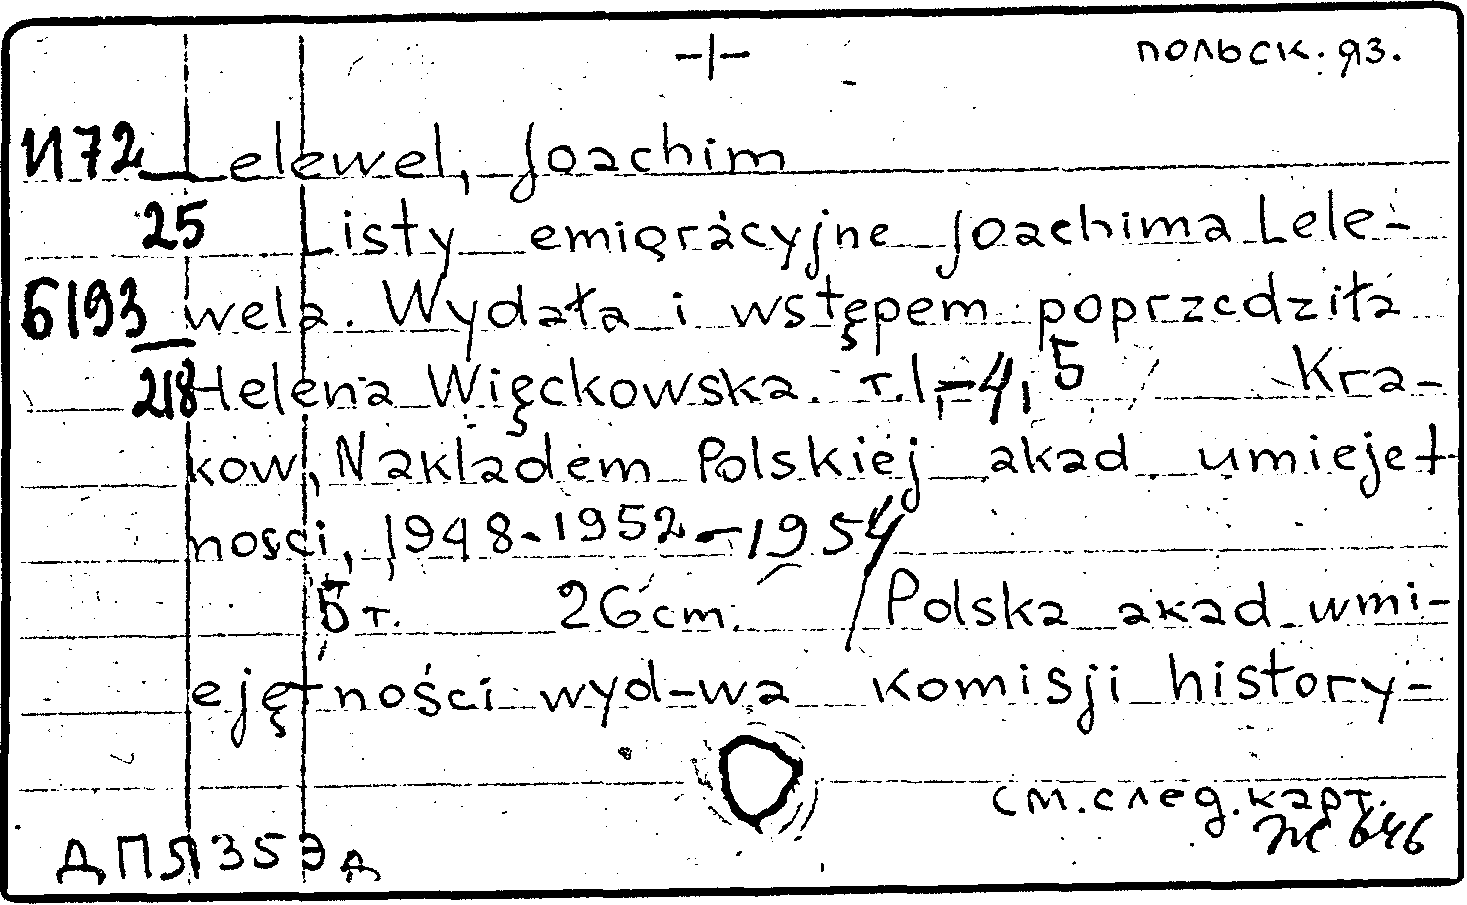 польск. яз.
И72 Lelewel, Joachim
25 Listy emigrácyjne Joachima Lele-
6193 wela. Wydała i wstępem poprzedziła
218 Helena Więckowska. т.1,-4, 5 Kra-
kow, Nakładem Polskiej akad umiejęt-
ności, 1948-1952-1954
5 т. 26 cm. /Polska akad. umi-
ejętności wyd-wa komisji history-
см. след. карт.
ДПЯ 35
646